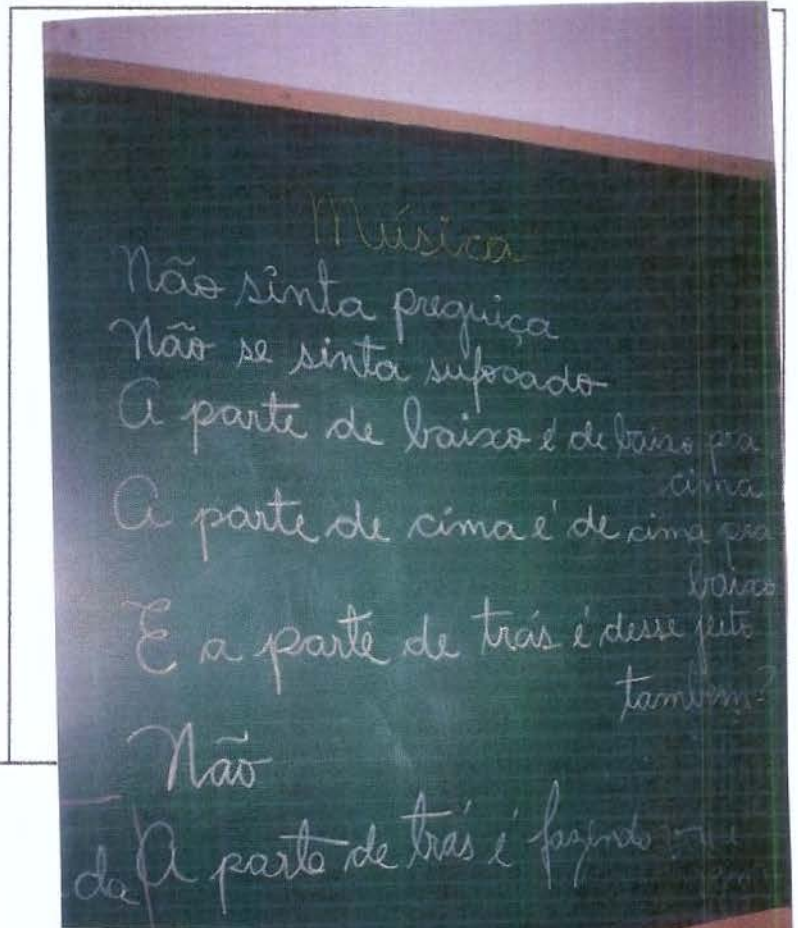 Música
Não sinta preguiça
Não se sinta sufocado
A parte de baixo é de baixo pra
cima
A parte de cima é de cima pra
baixo
E a parte de trás é desse jeito
também?
Não
da A parte de trás é fazendo